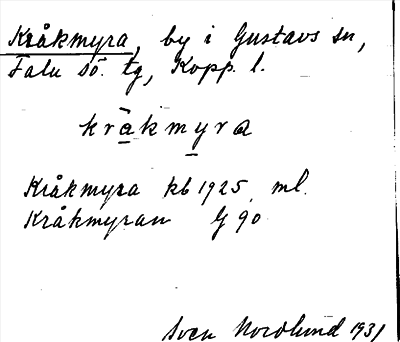 Kråkmyra, by i Gustavs sn,
Falu sö. tg, Kopp. l.
kråkmyra
Kråkmyra kb 1925 ml.
Kråkmyran G 90
Sven Nordlund 1931